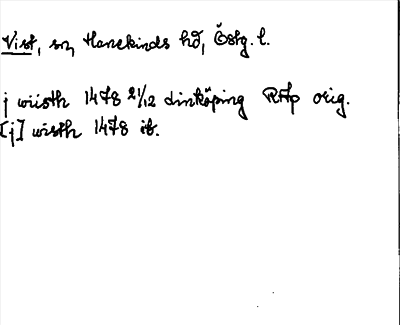 Vist, sn, Hanekinds hd, Östg. l.
j wiisth 1478 21/12 Linköping RAp orig.
[j] wisth 1478 ib.